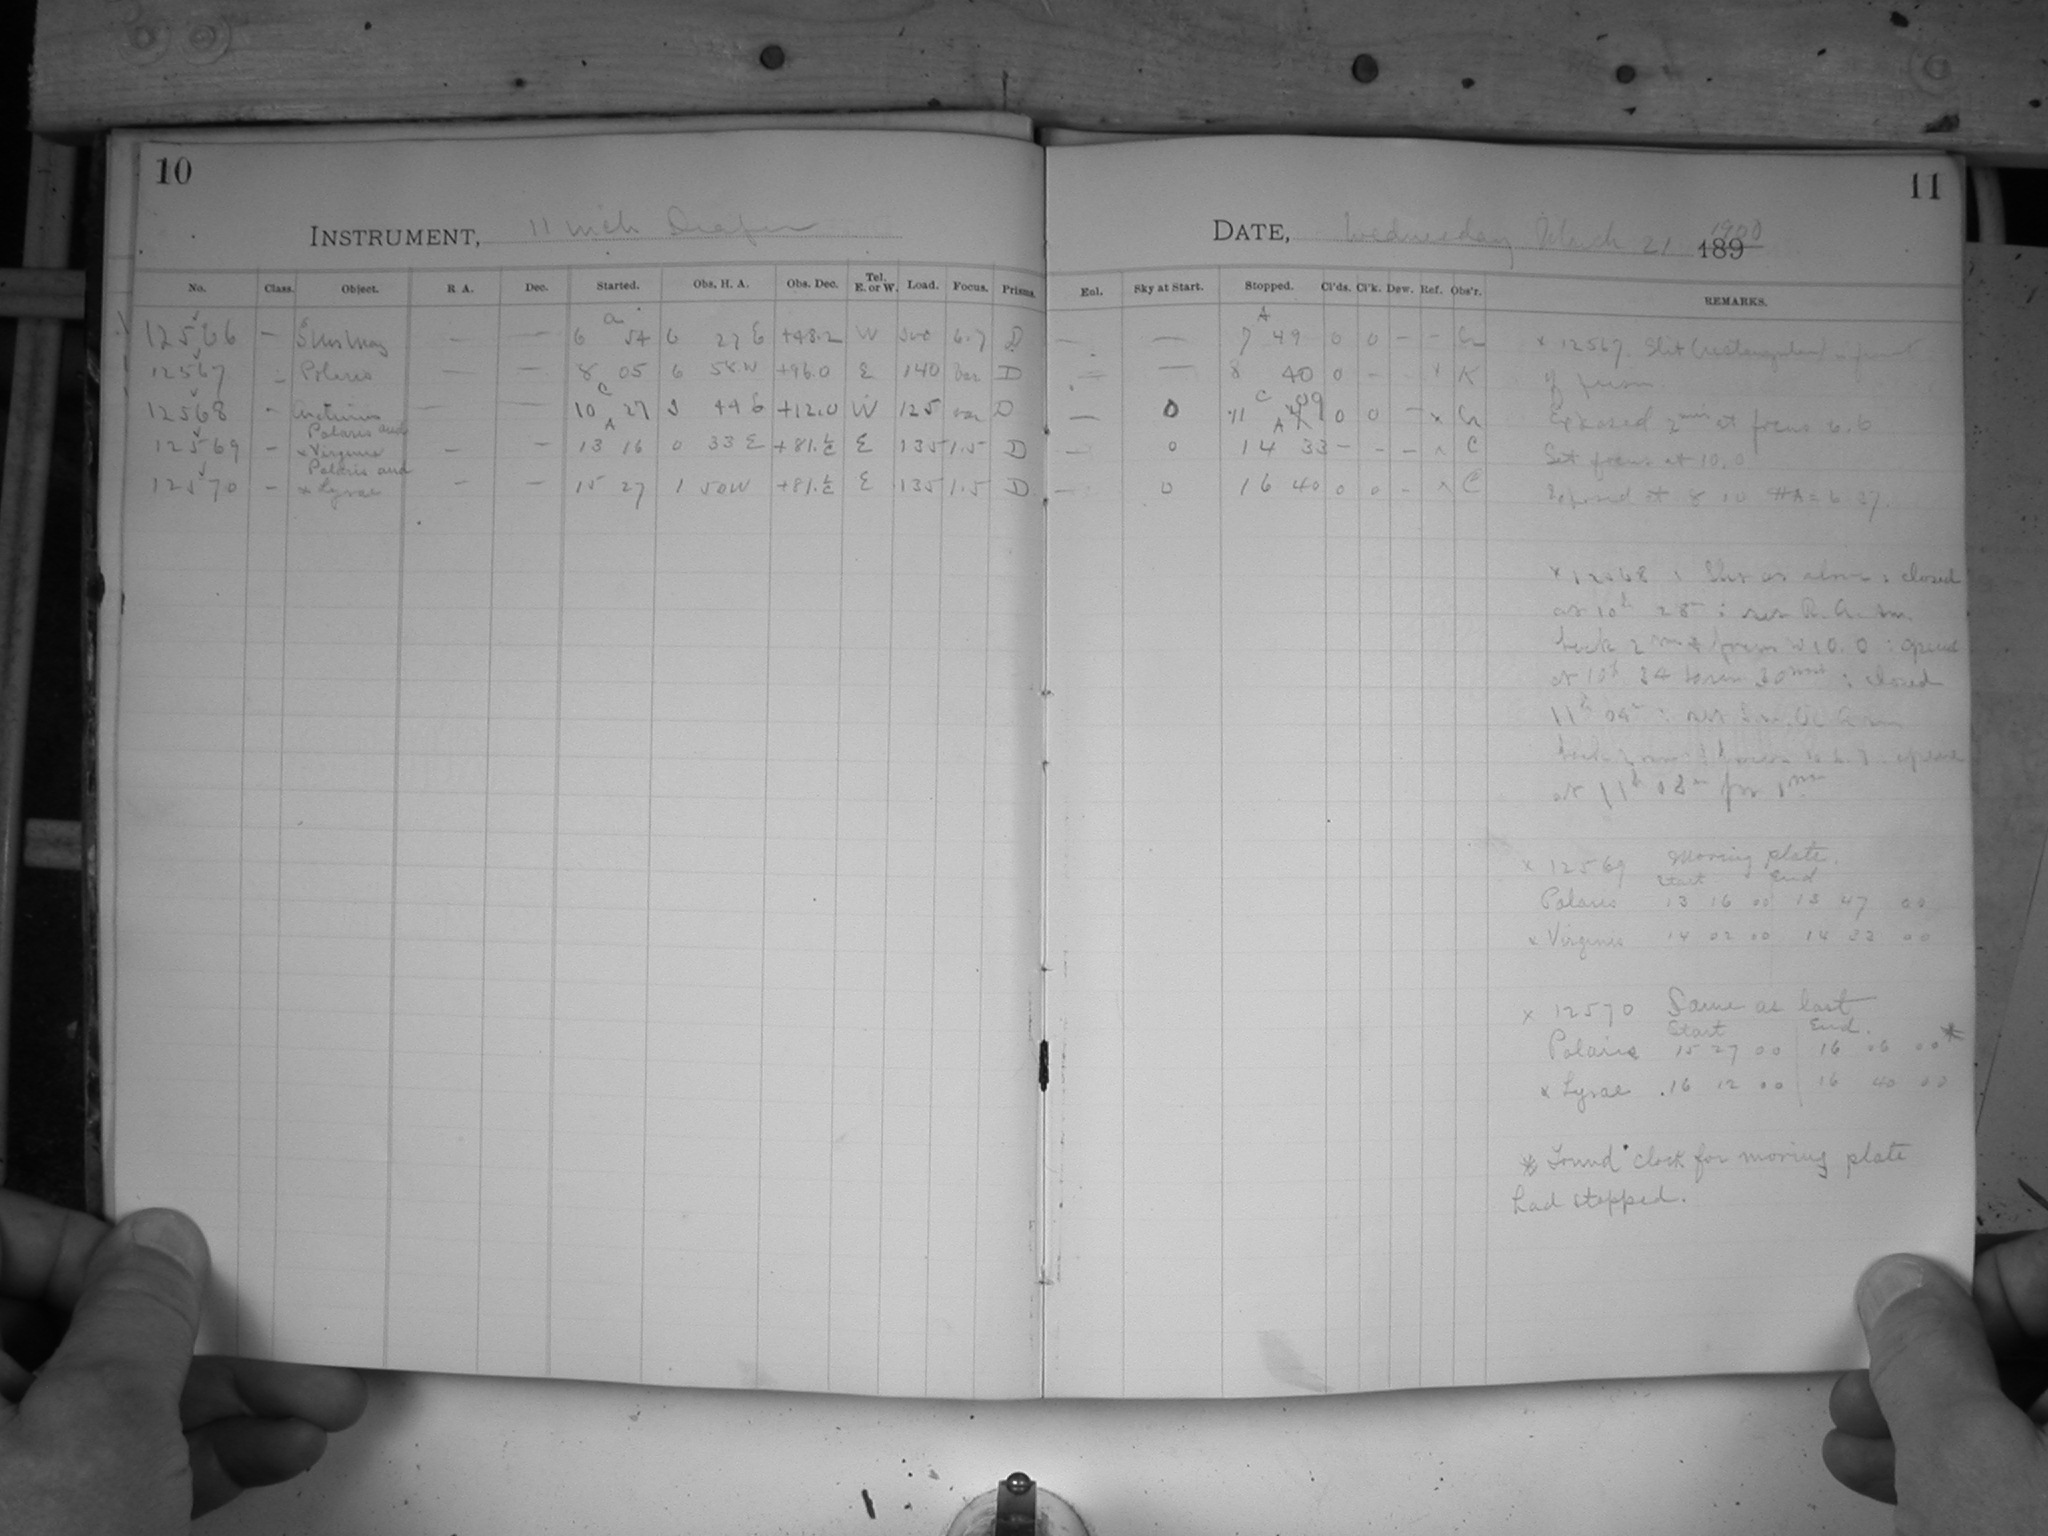 10
INSTRUMENT, 11 inch Draper
No. Class. Object. R A. Dec. Started. Obs. H. A. Obs. Dec. Tel. E. or W. Load. Focus. Prisms.
12566 – δ Urs Maj — — 6 54 6 27 E +48.2 W 6.7 D
12567 – Polaris — — 8 05 6 58 W +96.0 E 140 var D
12568 - Arcturus — — 10 27 3 44 E +12.0 W 125 var D
12569 – Polaris and α Virginis — — 13 16 0 33 E +81.½ E 135 1.5 D
12570 – Polaris and α Lyrae – – 15 27 1 50 W +81.½ E 135 1.5 D
11
DATE, Wednesday March 21 1900 189
Enl. Sky at Start. Stopped. Cl'ds. Cl'k. Dew. Ref. Obs'r. REMARKS.
— — 7 49 0 0 – –
— — 8 40 0 - - x K
— 0 11 09 0 0 – x
— 0 14 33 – - – x C
— 0 16 40 0 0 - x C
x 12567. Slit (rectangular) in front
of prism
Exposed 2 min at focus 6.6
Set focus at 10.0
Exposed at 8 10 HA = 6 27.
x 12568 : Slit as above : closed
at 10h 28m : set R. A.
back 2 m & focus to 10.0 : opened
at 10h 34 30 min : closed
11h
at 11h 08m for 1 min
x 12569 Moving plate.
Start End
Polaris 13 16 00 13 47 00
α Virginis 14 02 00 14 33 00
x 12570 Same as last
Start End.
Polaris 15 27 00 16 06 00 *
α Lyrae 16 12 00 16 40 00
* Found clock for moving plate
had stopped.